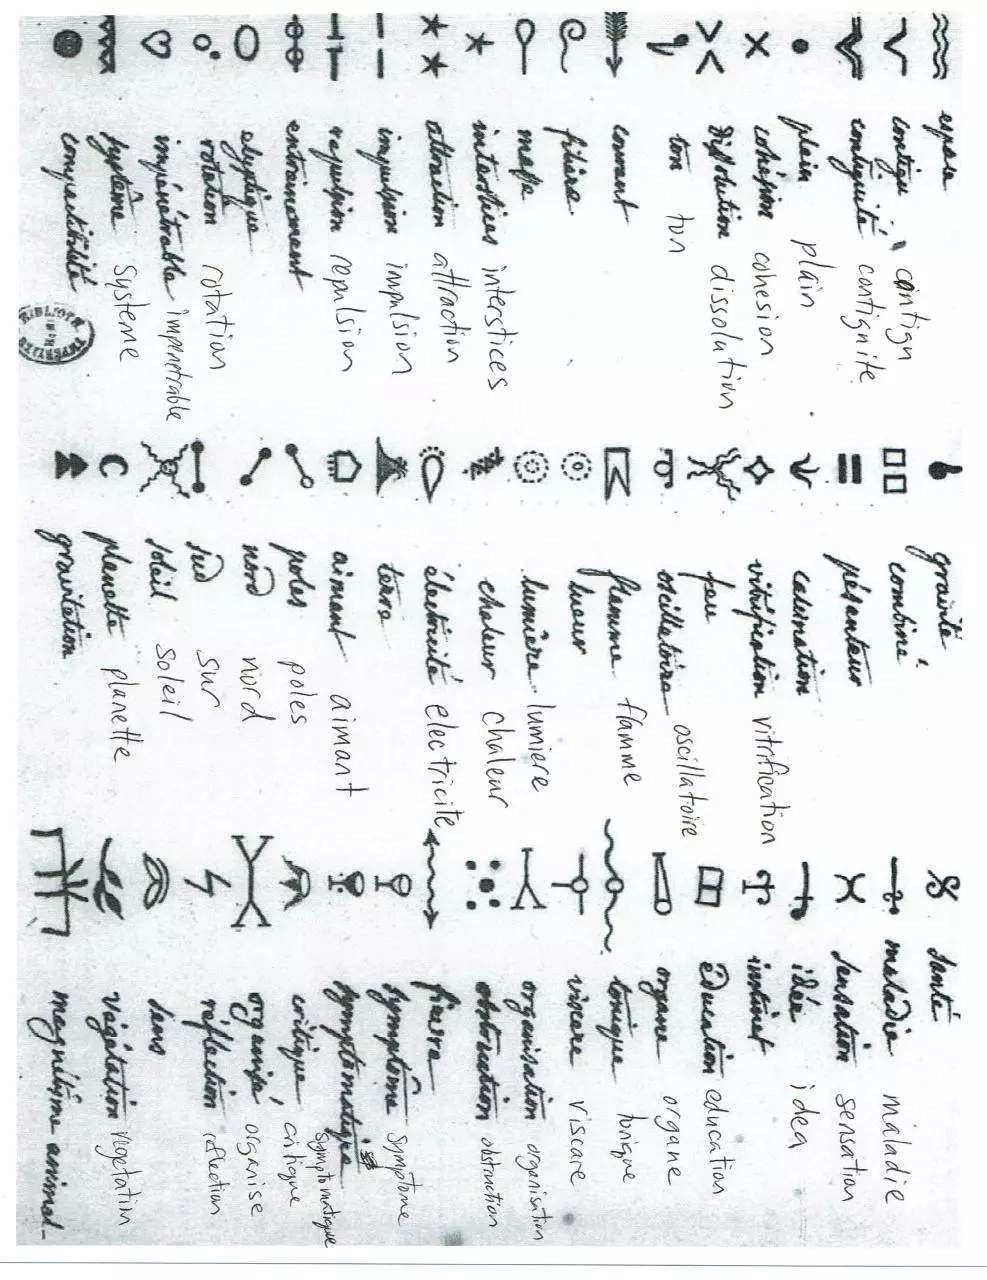 espace
contigu contign
contiguité contignite
plain plain
cohésion cohesion
dissolution dissolution
ton ton
courant
filière
masse
interstices interstices
attraction attraction
impulsion impulsion
repulsion repulsion
entrainement
elyptique
rotation rotation
impénétrable impenetrable
système systeme
compectibilité
gravité
combiné
pésanteur
calcination
vitrification vitrification
feu
oscillatoire oscillatoire
flamme flamme
lueur
lumière lumiere
chaleur chaleur
électricité electricite
terre
aimant aimant
poles poles
nord nord
sud sur
soleil soleil
planette planette
gravitation
Santé
maladie maladie
sensation sensation
idée idea
instinct
éducation education
organe organe
tonique tonique
viscare viscare
organisation organisation
obstruction obstruction
symptôme symptome
symptomatique symptomatique
critique critique
organisé organise
réflection reflection
sens
végétation vegetation
magnétisme animal